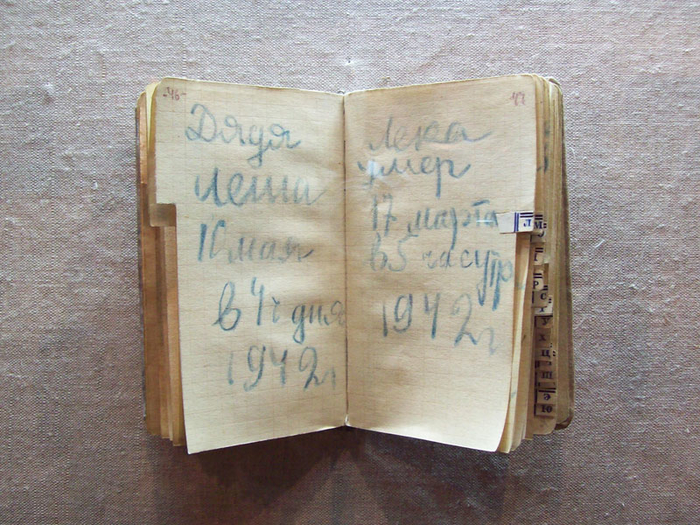 -46-
Дядя
Леша
10 мая
в 4ч дня
1942г
47
Лека
умер
17 марта
в 5 час утр
1942г
Л М
Р
С
У
Х
Ц
Э
Ю